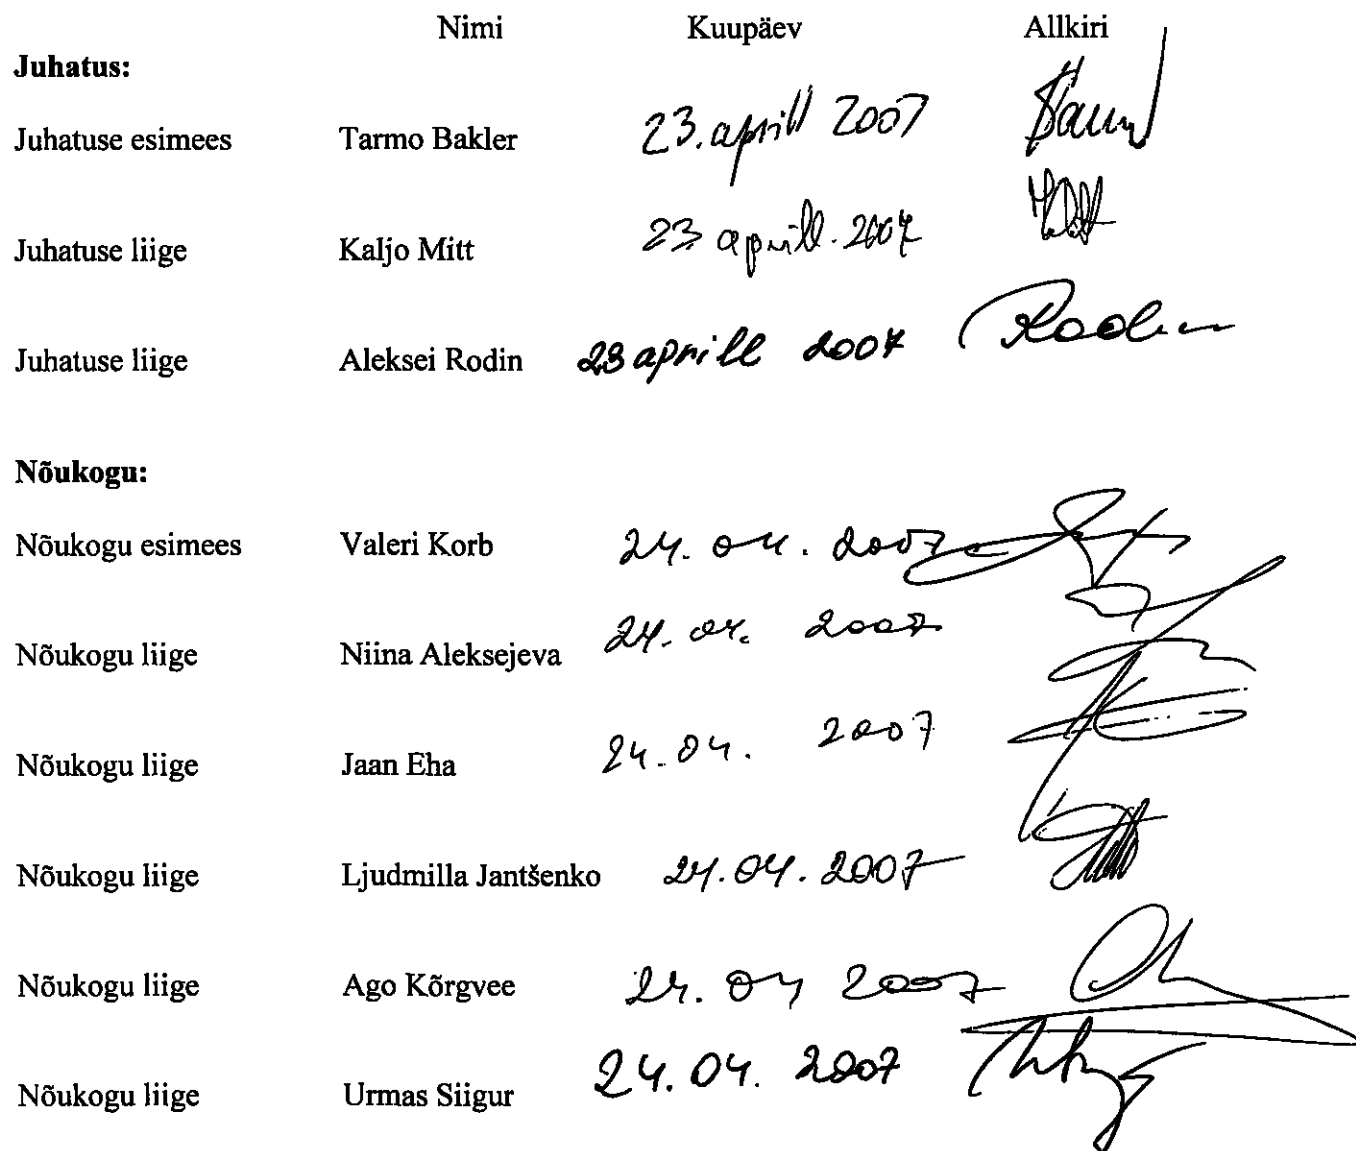 Nimi Kuupäev Allkiri
Juhatus:
Juhatuse esimees Tarmo Bakler 23. aprill 2007
Juhatuse liige Kaljo Mitt 23 aprill. 2007
Juhatuse liige Aleksei Rodin 23 aprill 2007
Nõukogu:
Nõukogu esimees Valeri Korb 24. 04. 2007
Nõukogu liige Niina Aleksejeva 24. 04. 2007
Nõukogu liige Jaan Eha 24.04. 2007
Nõukogu liige Ljudmilla Jantšenko 24.04.2007
Nõukogu liige Ago Kõrgvee 24. 04 2007
Nõukogu liige Urmas Siigur 24.04. 2007